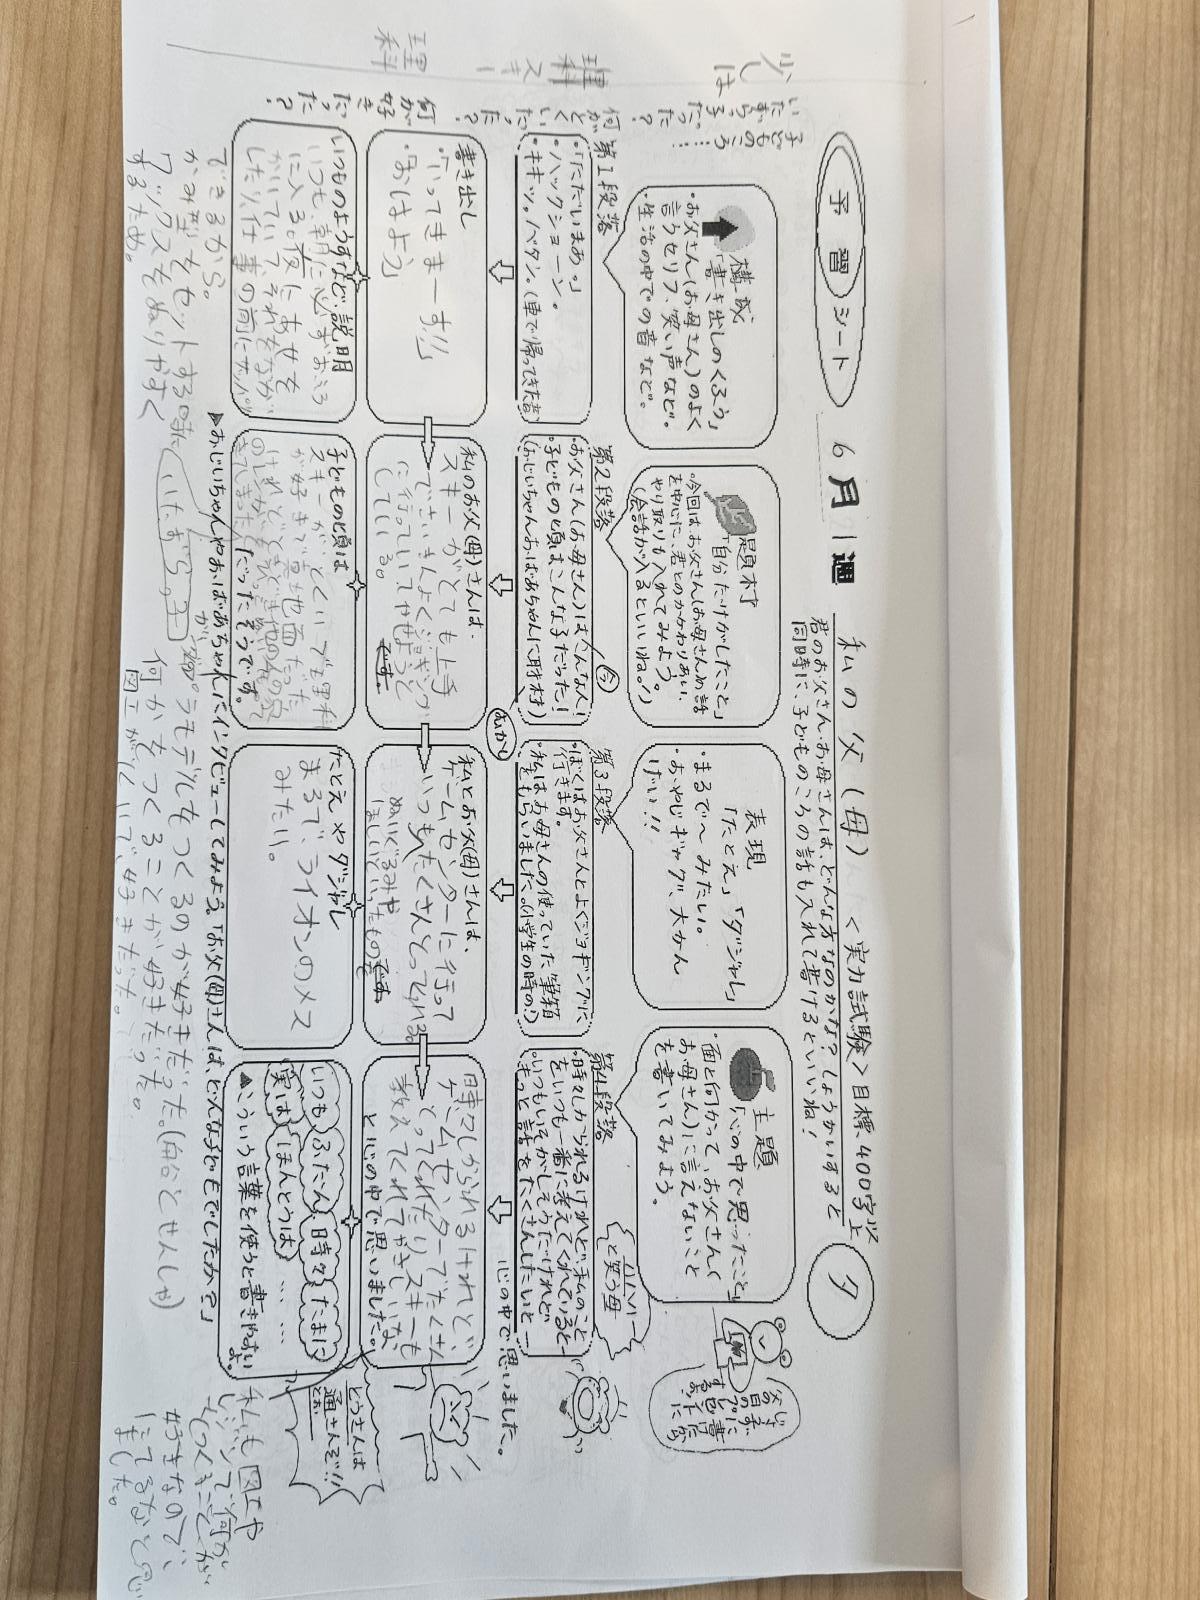 予習シート
6月1週
私の父(母)
<実力試験>目標400字以上
夕
君のお父さん、お母さんは、どんな方なのかな?しょうかいすると
同時に、子どものころの話も入れて書けるといいね!
構成
「書き出しのくふう」
・お父さん(お母さん)のよく
言うセリフ、笑い声など。
・生活の中での音など。
題材
「自分だけがしたこと」
・今回は、お父さん(お母さん)の話
を中心に、君とのかかわりあい、
やり取りも入れてみよう。
(会話が入るといいね。!)
表現
「たとえ」「ダジャレ」
・まるで〜みたい。
・おやじギャグ、大かん
げい!!
主題
「心の中で思ったこと」
・面と向かって、お父さん(
お母さん)に言えないこと
を書いてみよう。
父の日の
プレゼントに
するよ。
ハハハー
と笑う母
子どものころ……
いたずらっ子
だった?
何がとくい
だった?
何が
好き
だった?
少しは
理科
スキー
理科
第1段落
・「ただいまあ。」
・ハックショーン。
・キキッ。バタン。(車で帰ってきた音)
第2段落
・お父さん(お母さん)はこんな人!
・子どもの頃はこんな子だった!
(おじいちゃん、おばあちゃんに取材)
今
むかし
第3段落
・ぼくはお父さんとよくジョギングに
行きます。
・私はお母さんの使っていた筆箱
をもらいました。(小学生の時の!)
第4段落
・時々しかられるけれど、私のこと
をいつも一番に考えてくれていると―
・いつもいそがしそうだけれど
もっと話をたくさんしたいと―
心の中で思いました。
書き出し
・「いってきまーす!!」
・「おはよう」
私のお父(母)さんは、
スキーがとても上手
でさいきんよくジョギング
に行っていてやせようと
している。
です。
私とお父(母)さんは、
ゲームセンターに行って
いつもたくさんとってくれる
ぬいぐるみや
ほしいといったもの
です
時々しかられるけれど、
ゲームセンターでたくさん
とってくれたりスキーも
教えてくれてやさしいな
と心の中で思いました。
いつものようすなど、説明
いつも、朝に必ずおふろ
に入る。夜にあせを
かいていて、それをながし
したり仕事の前に
できるから。
かみ型をセットする時に
ワックスをぬりやすく
するため。
子どもの頃は
スキーがとくいで理科
が好きで
だったそうです。
いたずらっ子
たとえやダジャレ
まるで、ライオンのメス
みたい。
いつも ふだん、時々、たまに
実は ほんとうは ……
▲こういう言葉を使うと書きやすい
よ。
とうさんは
通さんぞ!!
▶おじいちゃんやおばあちゃんにインタビューしてみよう。「お父(母)さんは、どんな子どもでしたか?」
プラモデルをつくるのが好きだった。(舟台とせんしゃ)
何かをつくることが好きだった。
図工がとくいで、好きだった。
私も図工や
好きなので、
にてるなと思い
ました。